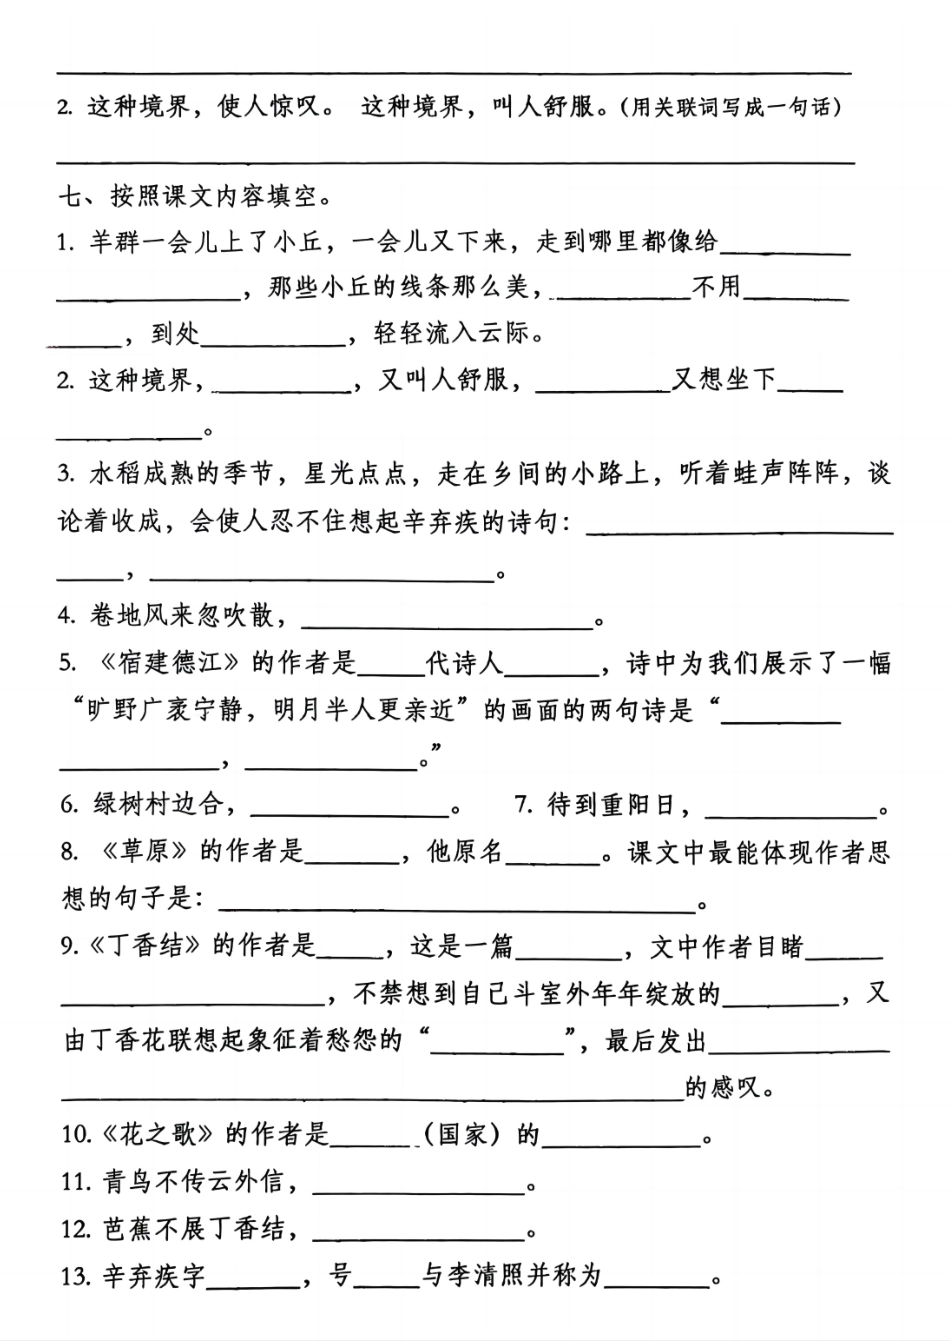 2. 这种境界，使人惊叹。 这种境界，叫人舒服。（用关联词写成一句话）
七、按照课文内容填空。
1. 羊群一会儿上了小丘，一会儿又下来，走到哪里都像给__________
______________，那些小丘的线条那么美，__________不用________
______，到处___________，轻轻流入云际。
2. 这种境界，__________，又叫人舒服，__________又想坐下_____
___________。
3. 水稻成熟的季节，星光点点，走在乡间的小路上，听着蛙声阵阵，谈
论着收成，会使人忍不住想起辛弃疾的诗句：_______________________
_____，__________________________。
4. 卷地风来忽吹散，______________________。
5. 《宿建德江》的作者是_____代诗人_______，诗中为我们展示了一幅
“旷野广袤宁静，明月半人更亲近”的画面的两句诗是“_________
____________，_____________。”
6. 绿树村边合，_______________。 7. 待到重阳日，_____________。
8. 《草原》的作者是_______，他原名_______。课文中最能体现作者思
想的句子是：____________________________________。
9.《丁香结》的作者是_____，这是一篇________，文中作者目睹______
____________________，不禁想到自己斗室外年年绽放的_________，又
由丁香花联想起象征着愁怨的“__________”，最后发出______________
_______________________________________________的感叹。
10.《花之歌》的作者是______（国家）的____________。
11. 青鸟不传云外信，________________。
12. 芭蕉不展丁香结，________________。
13. 辛弃疾字_______，号_____与李清照并称为________。